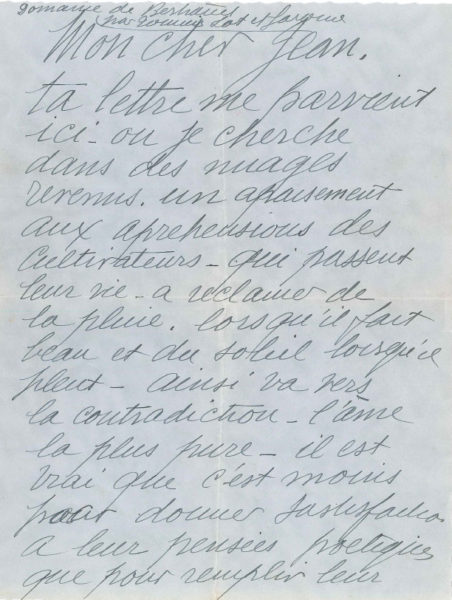 Domaine de
par Domme Lot et Garonne
Mon cher Jean.
ta lettre me parvient
ici - ou je cherche
dans des nuages
revenus. un apaisement
aux aprehensions des
cultivateurs - qui passent
leur vie - a reclamer de
la pluie. lorsqu'il fait
beau et du soleil lorsqu'il
pleut - ainsi va vers
la contradiction - l'âme
la plus pure - il est
vrai que c'est moins
pour donner satisfaction
a leur pensées poetiques
que pour remplir leur